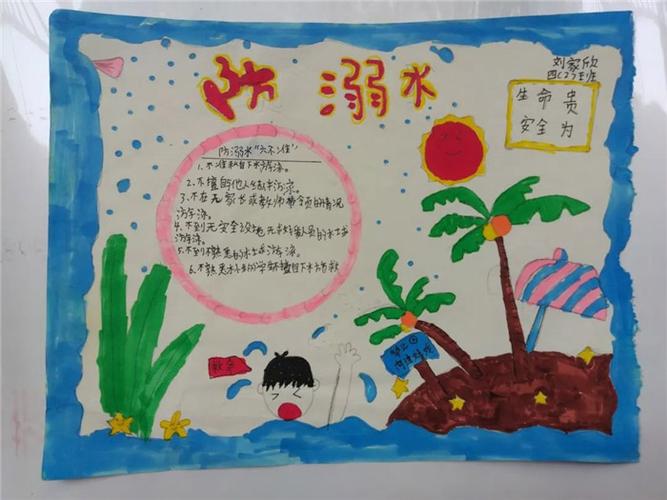 防溺水
刘家欣
四(2)班
生命贵
安全为
防溺水"六不准"
1.不准私自下水游泳。
2.不擅自与他人结伴游泳。
3.不在无家长或教师带领的情况
游泳。
4.不到无安全设施、无救援人员的水域
游泳。
5.不到不熟悉的水域游泳。
6.不熟悉水性的学生不擅自下水施救
救命